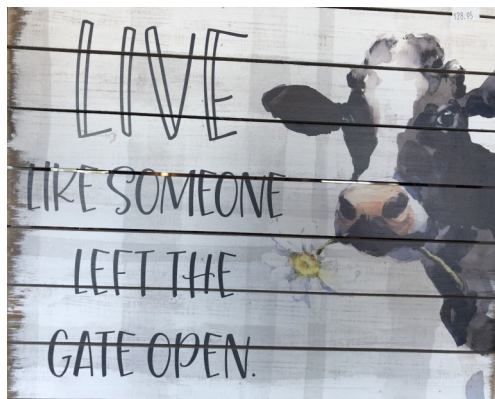 128.95
LIVE
LIKE SOMEONE
LEFT THE
GATE OPEN.